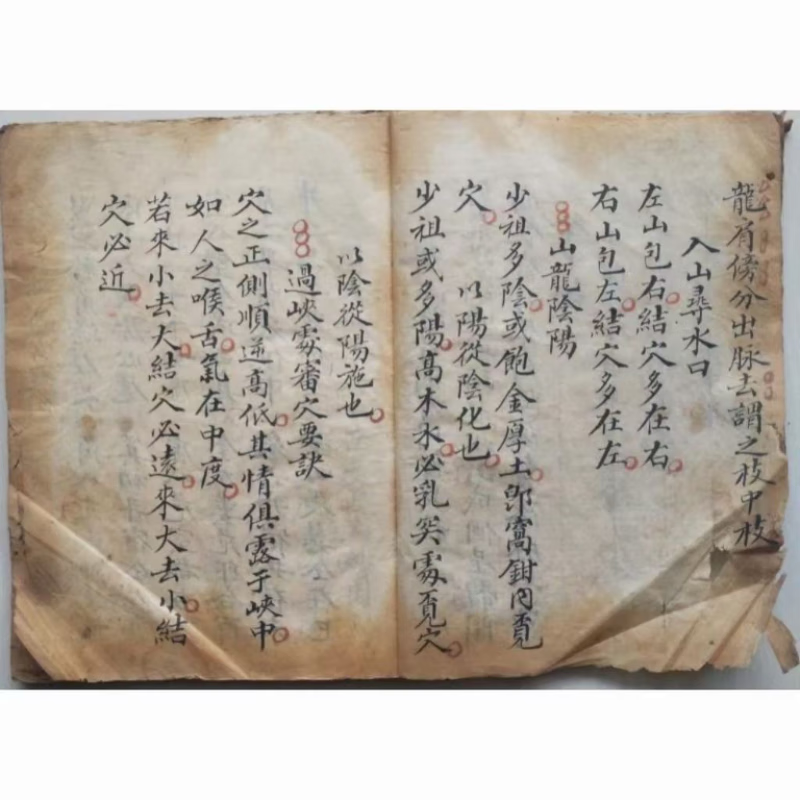 龍肩傍分出脈去謂之枝中枝
入山尋水口
左山包右結穴多在右
右山包左結穴多在左
山龍陰陽
少祖多陰或飽金厚土卽窩鉗內覓
穴 以陽從陰化也
少祖或多陽高木水必乳突處覓穴
以陰從陽施也
過峽處審穴要訣
穴之正側順逆高低其情俱露于峽中
如人之喉舌氣在中度
若來小去大結穴必遠來大去小結
穴必近